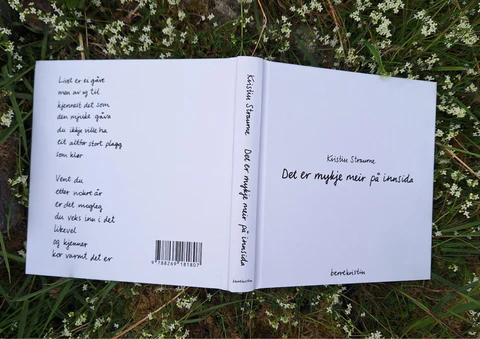 Livet er ei gåve
men av og til
kjennest det som
den mjuke gåva
du ikkje ville ha
eit altfor stort plagg
som klør
Vent du
etter nokre år
er det mogleg
du veks inn i det
likevel
og kjenner
kor varmt det er
9 788269 181807
Kristin Straume
Det er mykje meir på innsida
berrekristin
Kristin Straume
Det er mykje meir på innsida
berrekristin